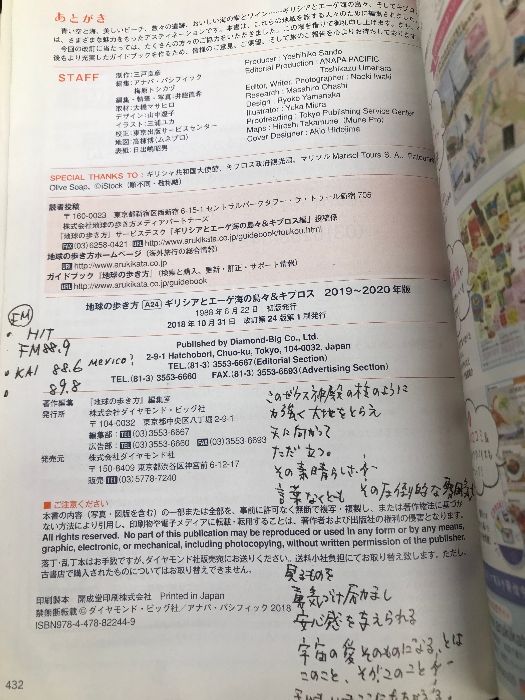 あとがき
青い空と海、美しいビーチ、数々の遺跡、おいしい魚の幸とワイン……ギリシアとエーゲ海の島々、そしてキプロ
は、さまざまな魅力をもったデスティネーションです。本書は、これらの地域を旅する人々のために編集されました
今回の改訂に当たっては、たくさんの方々のご協力をいただきました。この場を借りて御礼申し上げます。
後もより充実したガイドブックを作るため、皆様のご意見、ご要望、そして旅のご報告を心よりお待ちしております
STAFF
制作:三戸良彦
編集:アナパ・パシフィック
梅原トシカヅ
編集・執筆・写真:井脇直希
取材:大橋マサヒロ
デザイン:山中遼子
イラスト:三浦ユカ
校正:東京出版サービスセンター
地図:高棟博(ムネプロ)
表紙:日出嶋昭男
Producer : Yoshihiko Sando
Editorial Production : ANAPA PACIFIC
Toshikazu Umehara
Editor, Writer, Photographer : Naoki Iwaki
Research : Masahiro Ohashi
Design : Ryoko Yamanaka
Illustrator : Yuka Miura
Proofreading : Tokyo Publishing Service Center
Maps : Hiroshi Takamune (Mune Pro)
Cover Designer : Akio Hidejima
SPECIAL THANKS TO : ギリシャ共和国大使館、キプロス政府観光局、マリソル Marisol Tours S. A.、
Olive Soap、©iStock(順不同・敬称略)
読者投稿
〒160-0023 東京都新宿区西新宿 6-15-1 セントラルパークタワー・ラ・トゥール新宿 705
株式会社地球の歩き方メディアパートナーズ
「地球の歩き方」サービスデスク「ギリシアとエーゲ海の島々&キプロス編」投稿係
FAX(03)6258-0421 URL http://www.arukikata.co.jp/guidebook/toukou.html
地球の歩き方ホームページ(海外旅行の総合情報)
URL http://www.arukikata.co.jp
ガイドブック『地球の歩き方』(検索と購入、更新・訂正・サポート情報)
URL http://www.arukikata.co.jp/guidebook
地球の歩き方 A24 ギリシアとエーゲ海の島々&キプロス 2019～2020年版
1988年6月22日 初版発行
2018年10月31日 改訂第24版第1刷発行
FM
・HIT
FM88.9
・KAI 88.6 mexico?
・ 89.8
Published by Diamond-Big Co., Ltd.
2-9-1 Hatchobori, Chuo-ku, Tokyo, 104-0032, Japan
TEL.(81-3) 3553-6667 (Editorial Section)
TEL.(81-3) 3553-6660 FAX.(81-3) 3553-6693 (Advertising Section)
著作編集 『地球の歩き方』編集室
発行所 株式会社ダイヤモンド・ビッグ社
〒104-0032 東京都中央区八丁堀 2-9-1
編集部:TEL(03)3553-6667
広告部:TEL(03)3553-6660 FAX(03)3553-6693
発売元 株式会社ダイヤモンド社
〒150-8409 東京都渋谷区神宮前 6-12-17
販売 TEL(03)5778-7240
このゼウス神殿の柱のように
力強く大地をとらえ
天に向かって
ただ立つ。
その素晴らしさ
言葉なくとも その圧倒的な
■ ご注意ください
本書の内容(写真・図版を含む)の一部または全部を、事前に許可なく無断で複写・複製し、または著作権法に基づか
ない方法により引用し、印刷物や電子メディアに転載・転用することは、著作者および出版社の権利の侵害となります。
All rights reserved. No part of this publication may be reproduced or used in any form or by any means,
graphic, electronic, or mechanical, including photocopying, without written permission of the publisher.
落丁・乱丁本はお手数ですが、ダイヤモンド社販売宛にお送りください。送料小社負担にてお取り替え致します。ただし、
古書店で購入されたものについてはお取り替えできません。
見るものを
勇気づけ励まし
安心感を与えられる
宇宙の愛そのものになる、とは
このこと、そがこのことを
印刷製本 開成堂印刷株式会社 Printed in Japan
禁無断転載©ダイヤモンド・ビッグ社/アナパ・パシフィック 2018
ISBN978-4-478-82244-9
432